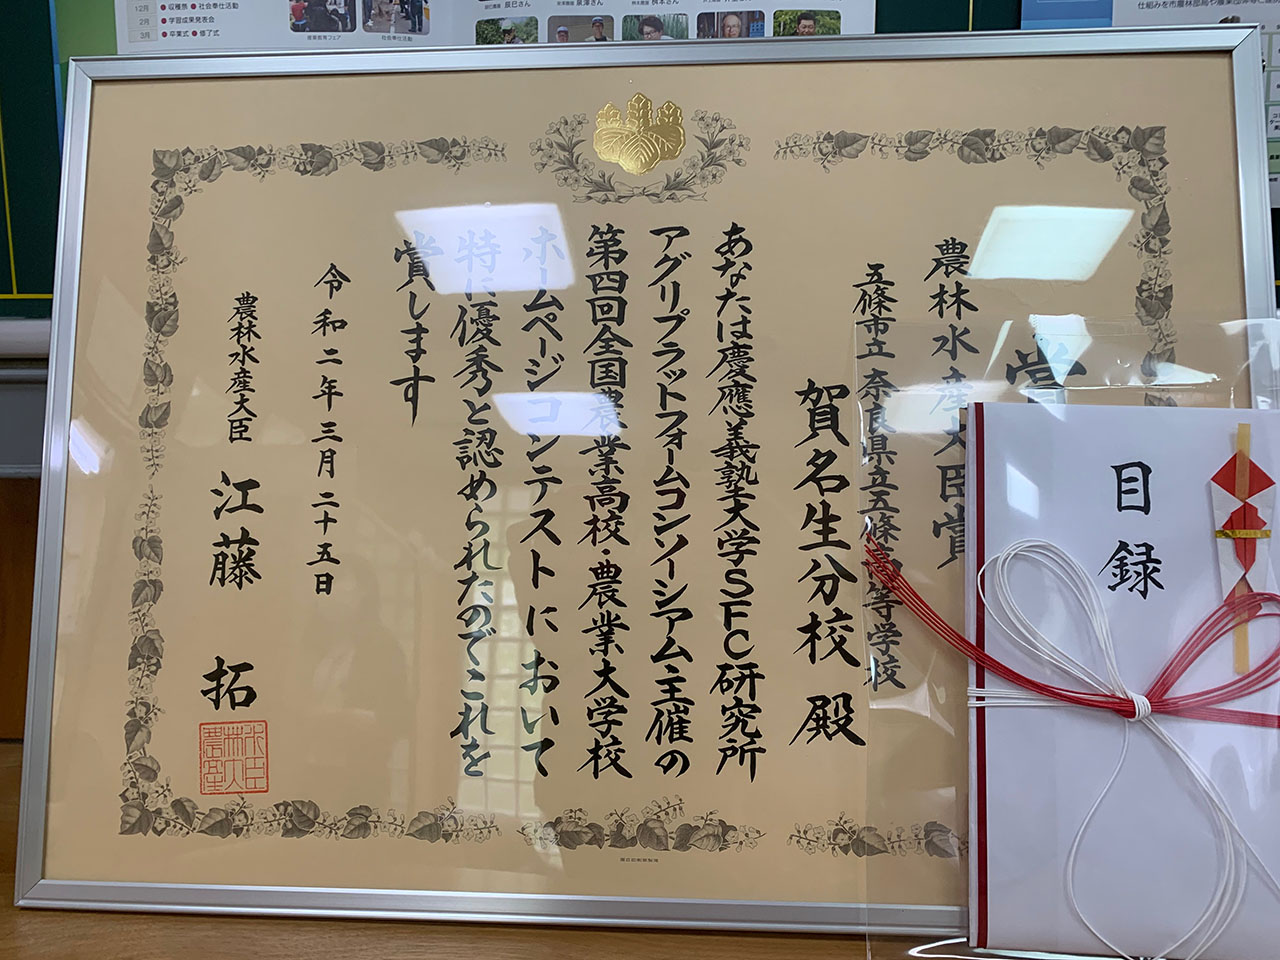 12月 ●収穫祭 ●社会奉仕活動
2月 ●学習成果発表会
3月 ●卒業式 ●修了式
農業教育フェア
社会奉仕活動
辰巳さん
泉澤さん
桝本さん
賞
農林水産大臣賞
五條市立 奈良県立五條高等学校
賀名生分校 殿
あなたは慶應義塾大学SFC研究所
アグリプラットフォームコンソーシアム主催の
第四回全国農業高校・農業大学校
ホームページコンテストにおいて
特に優秀と認められたのでこれを
賞します
令和二年三月二十五日
農林水産大臣 江藤 拓
目録